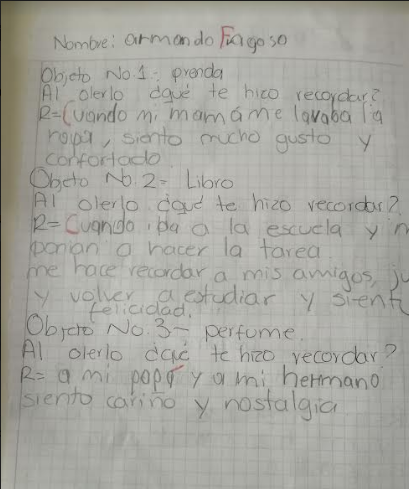 Nombre: armando Fragoso
Objeto No.1: prenda
Al olerlo ¿qué te hizo recordar?
R= Cuando mi mamá me lavaba la
ropa, siento mucho gusto y
confortado
Objeto No.2= Libro
Al olerlo ¿qué te hizo recordar?
R= Cuando iba a la escuela y
ponian a hacer la tarea
me hace recordar a mis amigos,
y volver a estudiar y
felicidad.
Objeto No.3- perfume.
Al olerlo ¿qué te hizo recordar?
R= a mi papá y a mi hermano
siento cariño y nostalgia